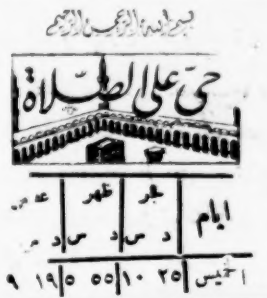 بسم الله الرحمن الرحيم
حي على الصلاة
ايام فجر ظهر عصر
د س د س د
الخميس ٢٥ ١٠ ٥٥ ٥ ١٩ ٩